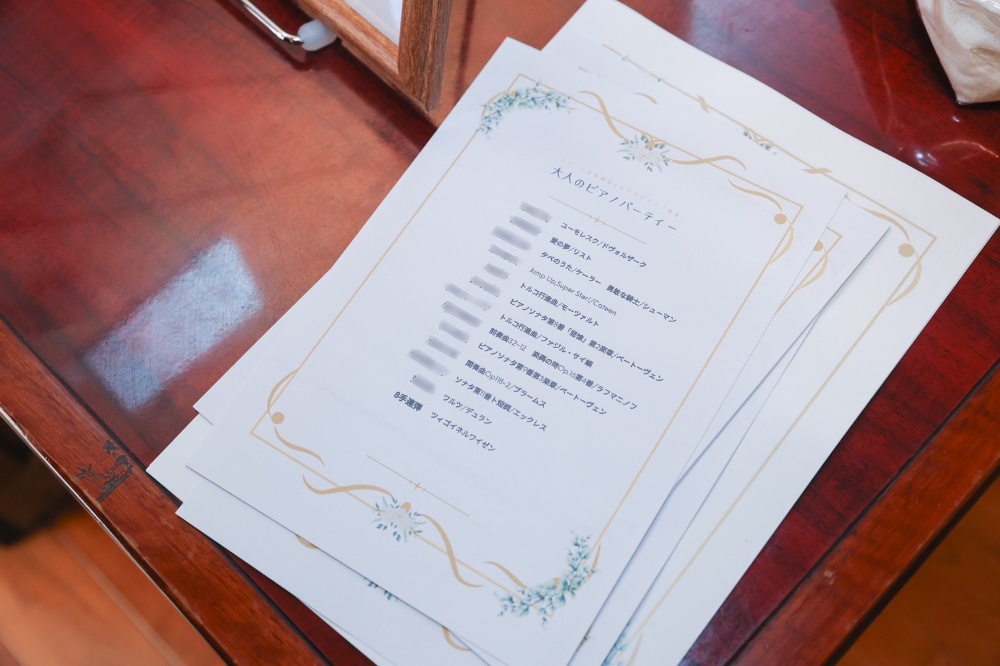 大人のピアノパーティー
ユーモレスク/ドヴォルザーク
愛の夢/リスト
夕べのうた/ケーラー 勇敢な騎士/シューマン
Jump Up,Super Star!/Cateen
トルコ行進曲/モーツァルト
ピアノソナタ第8番「悲愴」第2楽章/ベートーヴェン
トルコ行進曲/ファジル・サイ編
前奏曲32-12 楽興の時Op.16第4番/ラフマニノフ
ピアノソナタ第9番第3楽章/ベートーヴェン
間奏曲Op118-2/ブラームス
ソナタ第11番ト短調/エックレス
ワルツ/デュラン
8手連弾 ツィゴイネルワイゼン